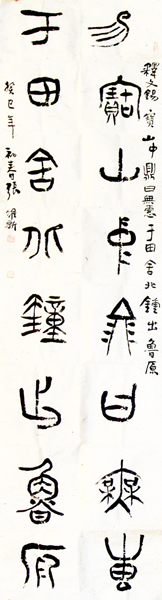 釋文錫寶山中鼎曰無惠于田舍北鍾出魯原
易寶山中鼎曰無惠
于田舍北鐘出魯原
癸巳年初春張